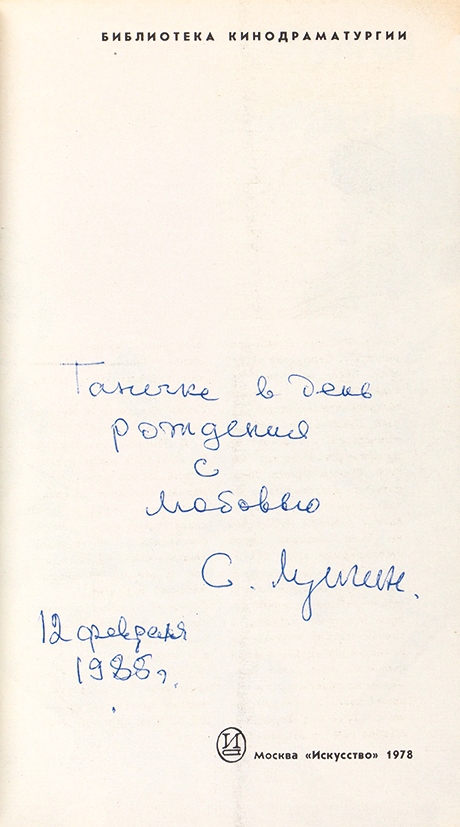 БИБЛИОТЕКА КИНОДРАМАТУРГИИ
Таничке в день
рождения
с
любовью
С. Лунгин.
12 февраля
1988 г.
Москва «Искусство» 1978